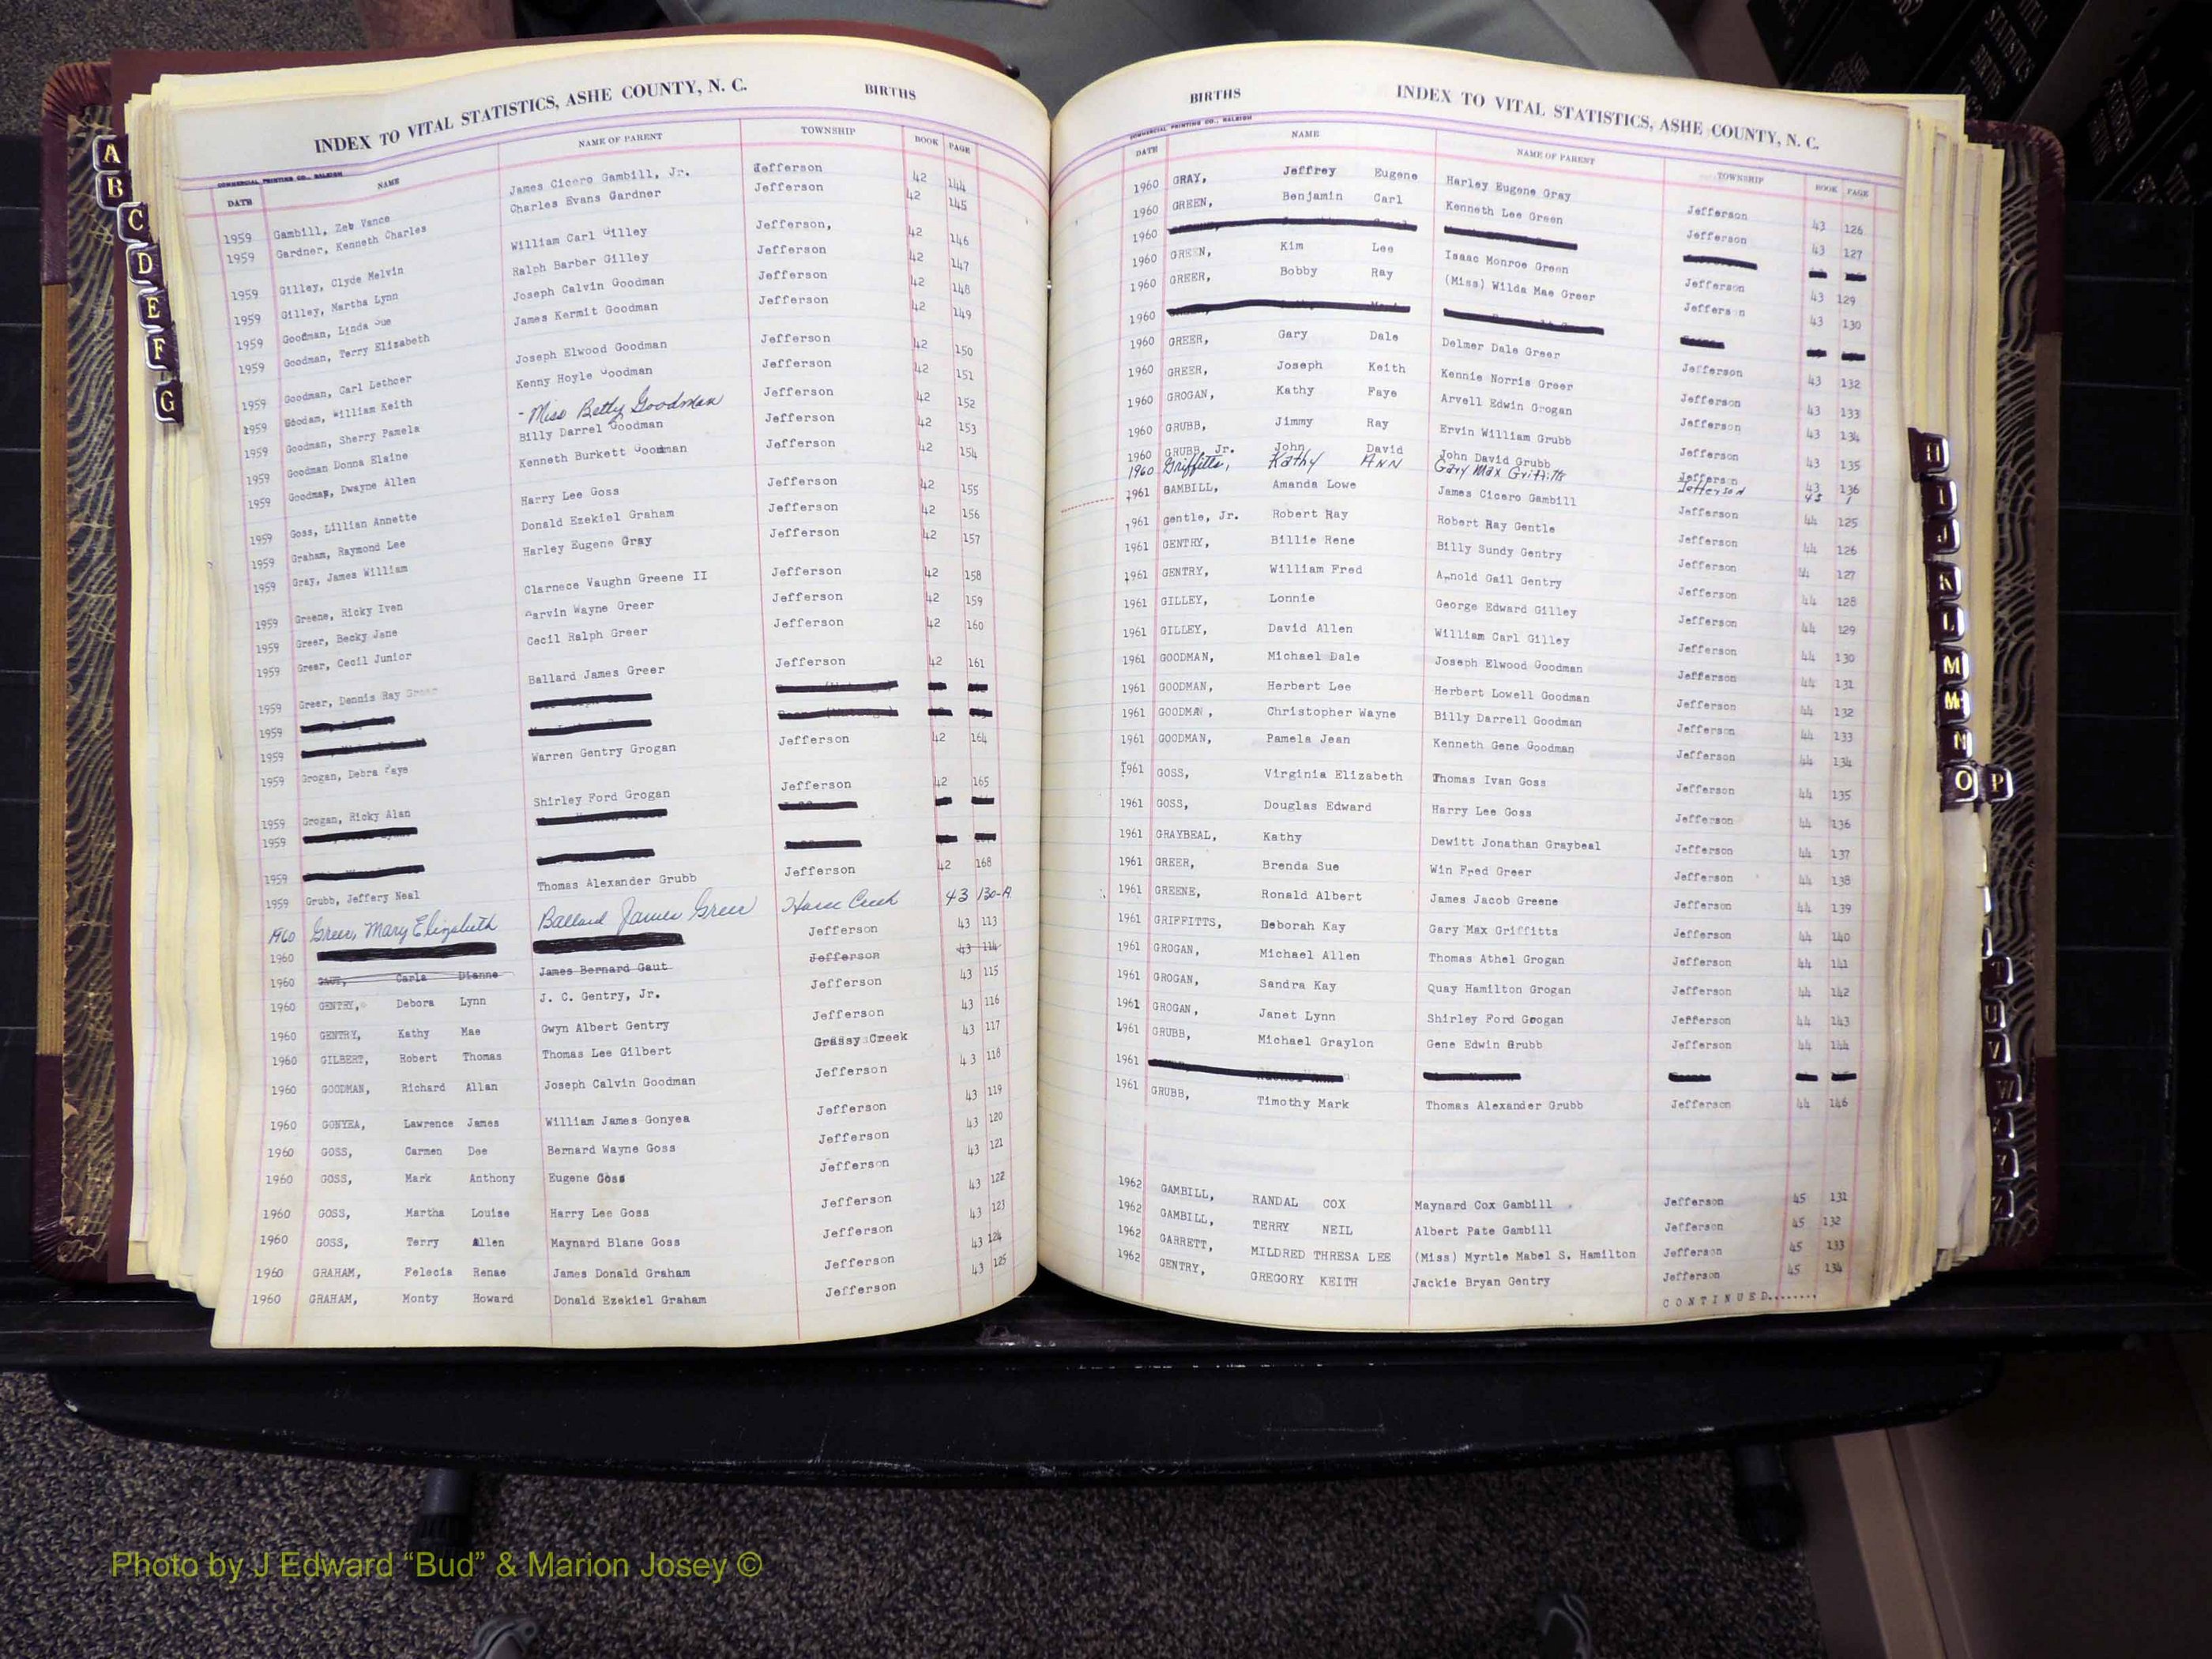 INDEX TO VITAL STATISTICS, ASHE COUNTY, N. C. BIRTHS
COMMERCIAL PRINTING CO., RALEIGH
DATE NAME NAME OF PARENT TOWNSHIP BOOK PAGE
1959 Gambill, Zeb Vance James Cicero Gambill, Jr. Jefferson 42 144
1959 Gardner, Kenneth Charles Charles Evans Gardner Jefferson 42 145
1959 Gilley, Clyde Melvin William Carl Gilley Jefferson, 42 146
1959 Gilley, Martha Lynn Ralph Barber Gilley Jefferson 42 147
1959 Goodman, Linda Sue Joseph Calvin Goodman Jefferson 42 148
1959 Goodman, Terry Elizabeth James Kermit Goodman Jefferson 42 149
1959 Goodman, Carl Lethcer Joseph Elwood Goodman Jefferson 42 150
1959 Goodam, William Keith Kenny Hoyle Goodman Jefferson 42 151
1959 Goodman, Sherry Pamela - Miss Betty Goodman Jefferson 42 152
1959 Goodman Donna Elaine Billy Darrel Goodman Jefferson 42 153
1959 Goodman, Dwayne Allen Kenneth Burkett Goodman Jefferson 42 154
1959 Goss, Lillian Annette Harry Lee Goss Jefferson 42 155
1959 Graham, Raymond Lee Donald Ezekiel Graham Jefferson 42 156
1959 Gray, James William Harley Eugene Gray Jefferson 42 157
1959 Greene, Ricky Iven Clarnece Vaughn Greene II Jefferson 42 158
1959 Greer, Becky Jane Garvin Wayne Greer Jefferson 42 159
1959 Greer, Cecil Junior Cecil Ralph Greer Jefferson 42 160
1959 Greer, Dennis Ray Greer Ballard James Greer Jefferson 42 161
1959
1959
1959 Grogan, Debra Faye Warren Gentry Grogan Jefferson 42 164
1959 Grogan, Ricky Alan Shirley Ford Grogan Jefferson 42 165
1959
1959
1959 Grubb, Jeffery Neal Thomas Alexander Grubb Jefferson 42 168
1960 Greer, Mary Elizabeth Ballard James Greer Horse Creek 43 130-A
1960 Jefferson 43 113
1960 GAUT, Carla Dianne James Bernard Gaut Jefferson 43 114
1960 GENTRY, Debora Lynn J. C. Gentry, Jr. Jefferson 43 115
1960 GENTRY, Kathy Mae Gwyn Albert Gentry Jefferson 43 116
1960 GILBERT, Robert Thomas Thomas Lee Gilbert Grassy Creek 43 117
1960 GOODMAN, Richard Allan Joseph Calvin Goodman Jefferson 43 118
1960 GONYEA, Lawrence James William James Gonyea Jefferson 43 119
1960 GOSS, Carmen Dee Bernard Wayne Goss Jefferson 43 120
1960 GOSS, Mark Anthony Eugene Goss Jefferson 43 121
1960 GOSS, Martha Louise Harry Lee Goss Jefferson 43 122
1960 GOSS, Terry Allen Maynard Blane Goss Jefferson 43 123
1960 GRAHAM, Felecia Renae James Donald Graham Jefferson 43 124
1960 GRAHAM, Monty Howard Donald Ezekiel Graham Jefferson 43 125
BIRTHS INDEX TO VITAL STATISTICS, ASHE COUNTY, N. C.
COMMERCIAL PRINTING CO., RALEIGH
DATE NAME NAME OF PARENT TOWNSHIP BOOK PAGE
1960 GRAY, Jeffrey Eugene Harley Eugene Gray Jefferson 43 126
1960 GREEN, Benjamin Carl Kenneth Lee Green Jefferson 43 127
1960
1960 GREEN, Kim Lee Isaac Monroe Green Jefferson 43 129
1960 GREER, Bobby Ray (Miss) Wilda Mae Greer Jefferson 43 130
1960
1960 GREER, Gary Dale Delmer Dale Greer Jefferson 43 132
1960 GREER, Joseph Keith Kennie Norris Greer Jefferson 43 133
1960 GROGAN, Kathy Faye Arvell Edwin Grogan Jefferson 43 134
1960 GRUBB, Jimmy Ray Ervin William Grubb Jefferson 43 135
1960 GRUBB, Jr. John David John David Grubb Jefferson 43 136
1960 Griffitts, Kathy ANN Gary Max Griffitts Jefferson 45 1
1961 GAMBILL, Amanda Lowe James Cicero Gambill Jefferson 44 125
1961 Gentle, Jr. Robert Ray Robert Ray Gentle Jefferson 44 126
1961 GENTRY, Billie Rene Billy Sundy Gentry Jefferson 44 127
1961 GENTRY, William Fred Arnold Gail Gentry Jefferson 44 128
1961 GILLEY, Lonnie George Edward Gilley Jefferson 44 129
1961 GILLEY, David Allen William Carl Gilley Jefferson 44 130
1961 GOODMAN, Michael Dale Joseph Elwood Goodman Jefferson 44 131
1961 GOODMAN, Herbert Lee Herbert Lowell Goodman Jefferson 44 132
1961 GOODMAN, Christopher Wayne Billy Darrell Goodman Jefferson 44 133
1961 GOODMAN, Pamela Jean Kenneth Gene Goodman Jefferson 44 134
1961 GOSS, Virginia Elizabeth Thomas Ivan Goss Jefferson 44 135
1961 GOSS, Douglas Edward Harry Lee Goss Jefferson 44 136
1961 GRAYBEAL, Kathy Dewitt Jonathan Graybeal Jefferson 44 137
1961 GREER, Brenda Sue Win Fred Greer Jefferson 44 138
1961 GREENE, Ronald Albert James Jacob Greene Jefferson 44 139
1961 GRIFFITTS, Deborah Kay Gary Max Griffitts Jefferson 44 140
1961 GROGAN, Michael Allen Thomas Athel Grogan Jefferson 44 141
1961 GROGAN, Sandra Kay Quay Hamilton Grogan Jefferson 44 142
1961 GROGAN, Janet Lynn Shirley Ford Grogan Jefferson 44 143
1961 GRUBB, Michael Graylon Gene Edwin Grubb Jefferson 44 144
1961
1961 GRUBB, Timothy Mark Thomas Alexander Grubb Jefferson 44 146
1962 GAMBILL, RANDAL COX Maynard Cox Gambill Jefferson 45 131
1962 GAMBILL, TERRY NEIL Albert Pate Gambill Jefferson 45 132
1962 GARRETT, MILDRED THRESA LEE (Miss) Myrtle Mabel S. Hamilton Jefferson 45 133
1962 GENTRY, GREGORY KEITH Jackie Bryan Gentry Jefferson 45 134
CONTINUED........
A
B
C
D
E
F
G
H
I
J
K
L
M
Mc
N
O P
T
U
V
W
Y
Z
Photo by J Edward “Bud” & Marion Josey ©